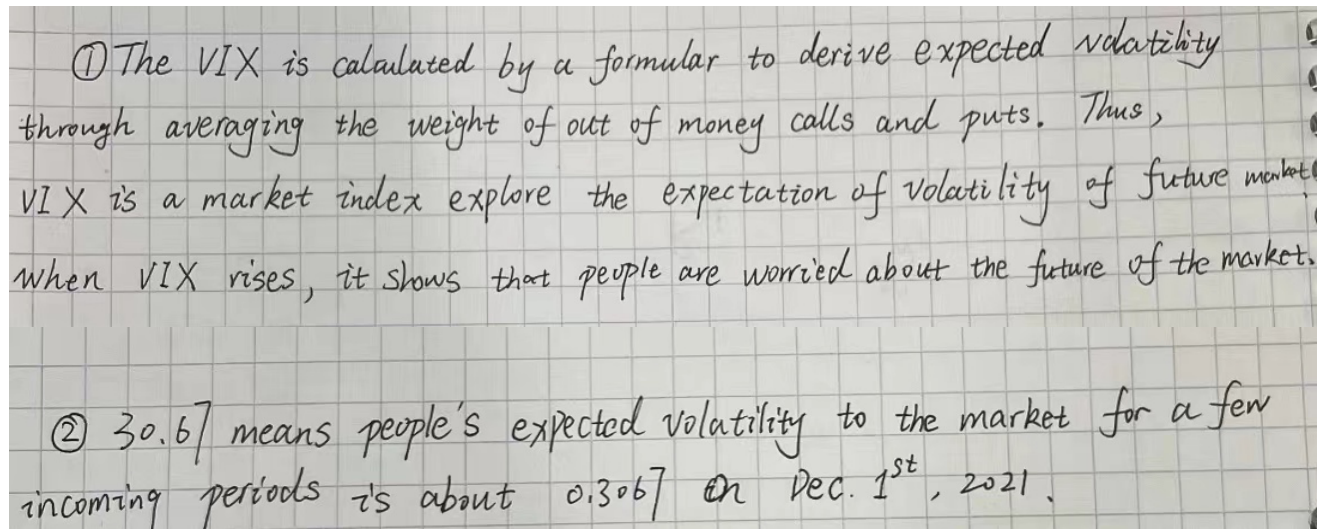 ① The VIX is calculated by a formular to derive expected volatility
through averaging the weight of out of money calls and puts. Thus,
VIX is a market index explore the expectation of volatility of future market.
when VIX rises, it shows that people are worried about the future of the market.
② 30.67 means people's expected volatility to the market for a few
incoming periods is about 0.3067 on Dec. 1st, 2021.